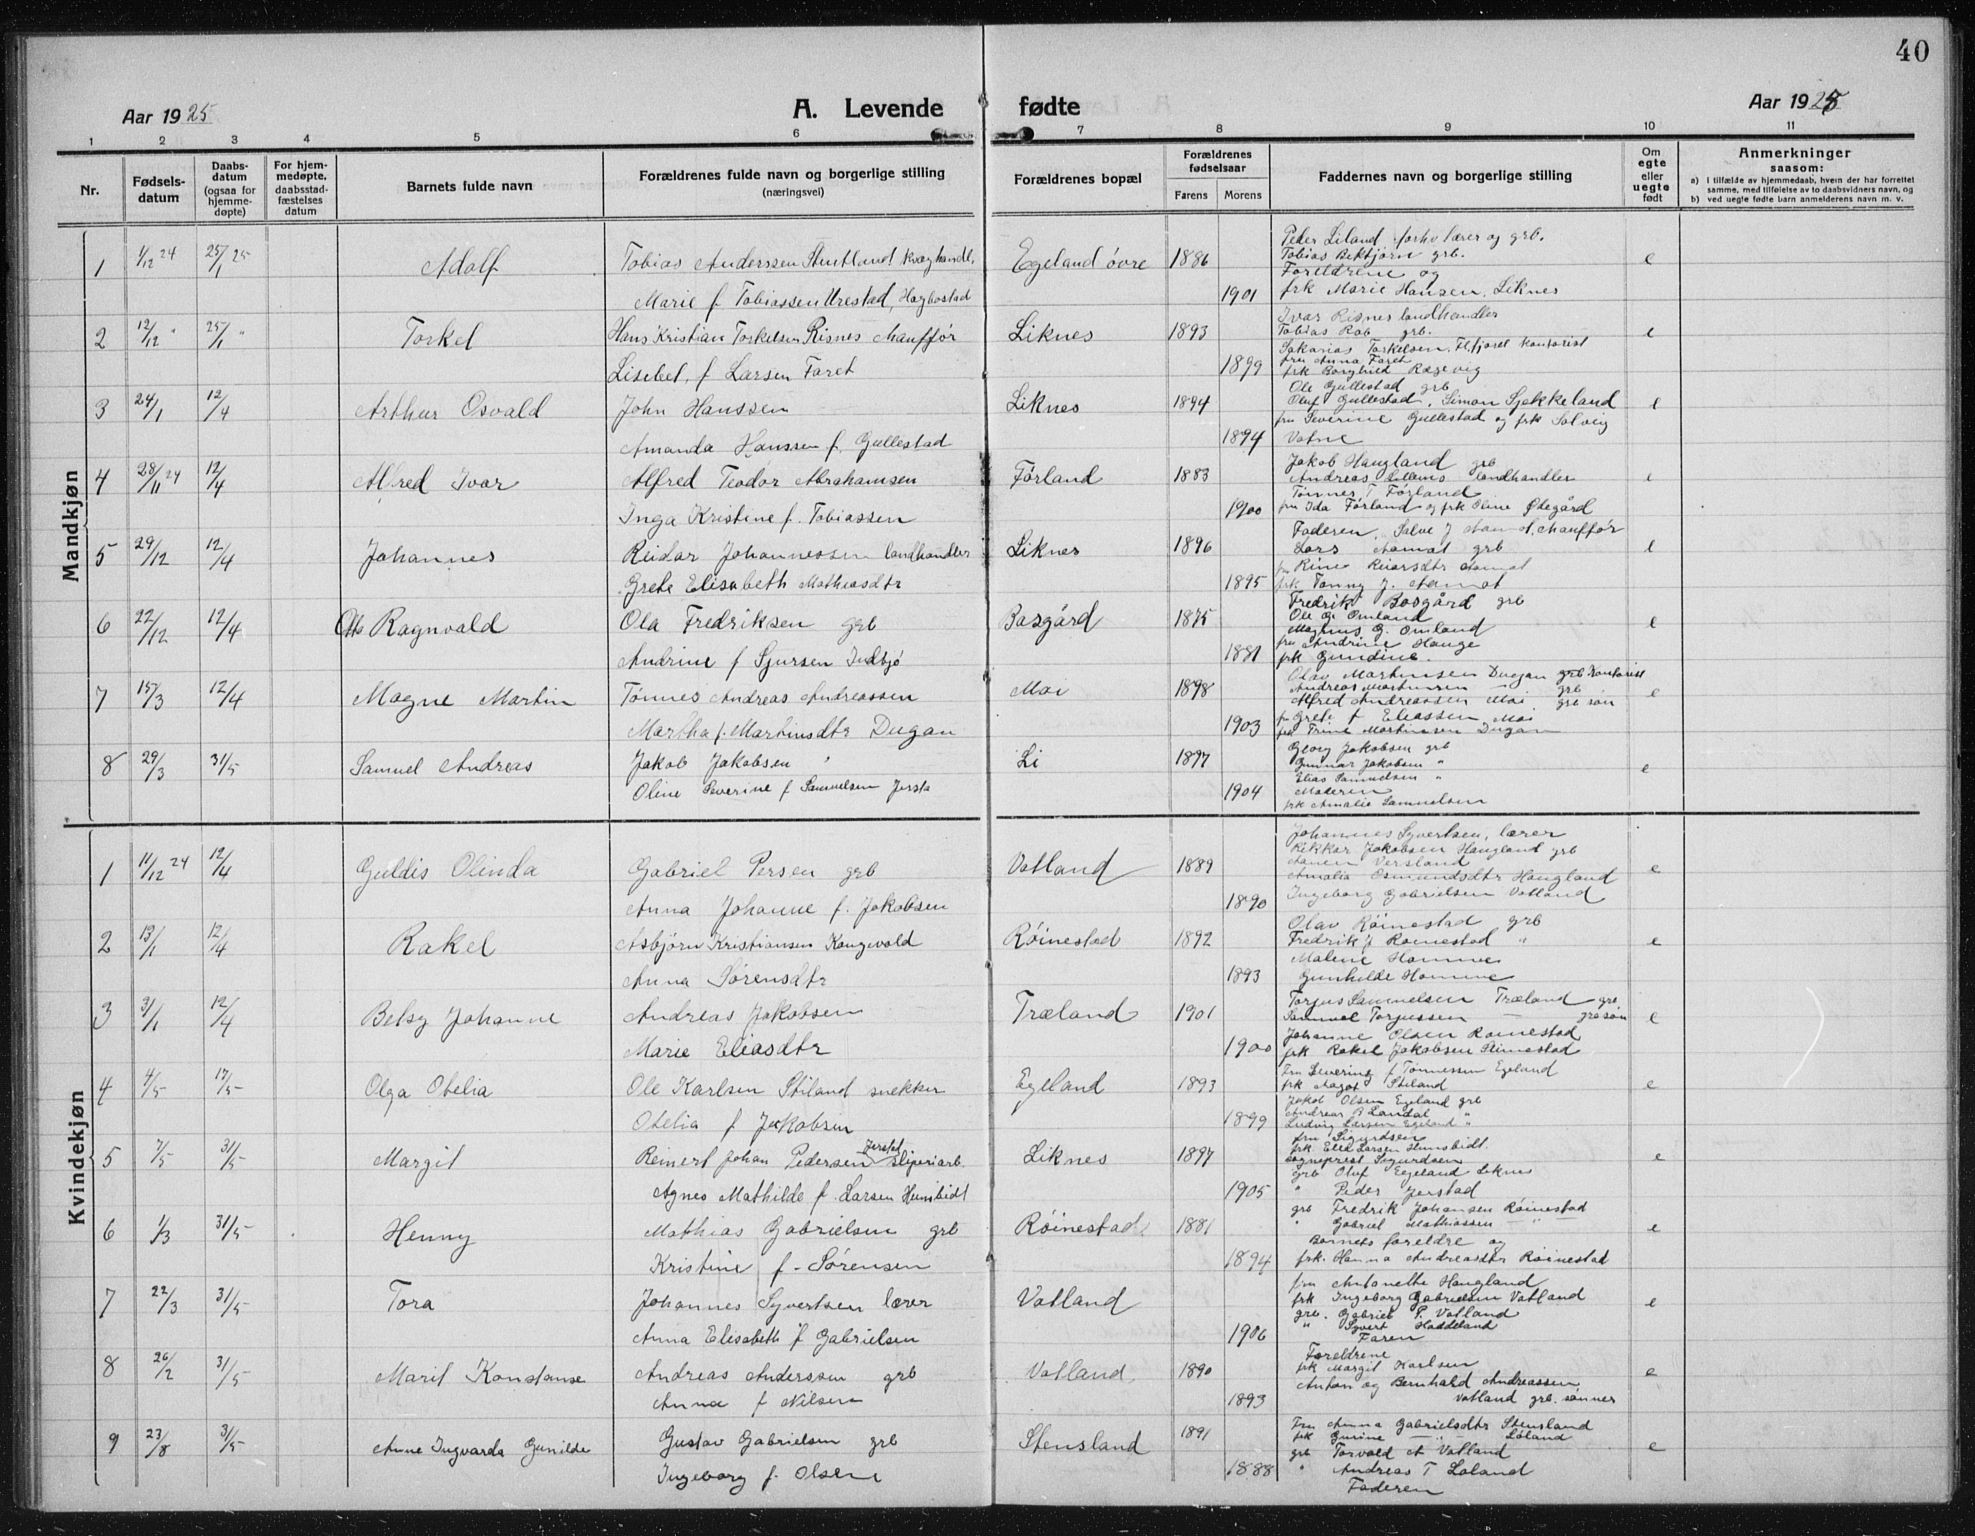 40
Aar 1925
A. Levende fødte
Aar 1925
1 2 3 4 5 6 7 8 9 10 11
Nr.
Fødsels-
datum
Daabs-
datum
(ogsaa for
hjemme-
døpte)
For hjem-
medøpte,
daabsstad-
fæstelses
datum
Barnets fulde navn
Forældrenes fulde navn og borgerlige stilling
(næringsvei)
Forældrenes bopæl
Forældrenes
fødselsaar
Farens Morens
Faddernes navn og borgerlige stilling
Om
egte
eller
uegte
født
Anmerkninger
saasom:
a) i tilfælde av hjemmedaab, hvem der har forrettet
samme, med tilføielse av to daabsvidners navn, og
b) ved uegte fødte barn anmelderens navn m. v.
Mandkjøn
1 1/12 24 25/1 25 Adolf Tobias Anderssen Stuttland kvæghandl. Egeland övre 1886 e
Marie f. Tobiassen Urestad, Hægbostad 1901
Peder Liland forhv lærer og grb.
Tobias Bektjørn grb.
Foreldrene og
frk Marie Hansen, Liknes
2 12/12 " 25/1 " Torkel Hans Kristian Torkelsen Risnes chauffør Liknes 1893 e
Lisebet f Larsen Faret 1899
Ivar Risnes landhandler
Tobias Rob grb.
Sakarias Torkelsen, Fl.fjord kontorist
fru Anna Faret
frk Borghild Ragevig
3 24/1 12/4 Arthur Osvald John Hanssen Liknes 1894 e
Amanda Hanssen f. Gullestad 1894
Ole Gullestad grb
Oluf Gullestad, Simon Sjekkeland
fru Severine Gullestad og frk Solveig
Vatne
4 28/11 24 12/4 Alfred Ivar Alfred Teodor Abrahamsen Førland 1883 e
Inga Kristine f. Tobiassen 1900
Jakob Haugland grb
Andreas landhandler
Tønnes T Førland
fru Ida Førland og frk Oline Ødegård
5 29/12 12/4 Johannes Reidar Johannessen landhandler Liknes 1896 e
Grete Elisabeth Mathiasdtr 1895
Faderen, Salve J Aamot, chauffør
Lars Aamot grb
fru Rine Reiarsdtr Aamot
frk Fanny J. Aamot
6 22/12 12/4 Otto Ragnvald Ola Fredriksen grb Basgård 1875 e
Andrine f Sjursen Indbjo 1881
Fredrik Basgård grb
Ole G. Omland
Magnus G. Omland
fru Andrine Hauge
frk Gundine.
7 15/3 12/4 Magne Martin Tønnes Andreas Andreassen Moi 1898 e
Martha f. Martinsdtr Dugan 1903
Olav Martinsen Dugan grb kontorist
Andreas Martinsen — grb
Alfred Andreassen Moi grb søn
fru Grete f Eliassen Moi
frk Trine Martinsen Dugan
8 29/3 31/5 Samuel Andreas Jakob Jakobsen " Li 1897 e
Oline Severine f Samuelsen Jersta 1904
Georg Jakobsen grb
Gunnar Jakobsen "
Elias Samuelsen "
Moderen
frk Amalie Samuelsen
Kvindekjøn
1 11/12 24 12/4 Guldis Olinda Gabriel Persen grb Vatland 1889 e
Anna Johanne f. Jakobsen 1890
Johannes Syvertsen, lærer
Rikkar Jakobsen Haugland grb
Aanen Versland
Amalia Osmundsdtr Haugland
Ingeborg Gabrielsen Vatland
2 13/1 12/4 Rakel Asbjørn Kristiansen Kongevold Røinestad 1892 e
Anna Sørensdtr 1893
Olav Røinestad grb
Fredrik J Roinestad "
Malene Homme
Gunhilde Homme
3 31/1 12/4 Betsy Johanne Andreas Jakobsen Træland 1901 e
Marie Eliasdtr 1900
Torjus Samuelsen Træland grb
Samuel Torjussen — grb søn
Johanne Olsen Roinestad
frk Rakel Jakobsen Stinestad
4 4/5 17/5 Olga Otelia Ole Karlsen Stiland snekker Egeland 1893 e
Otelia f Jakobsen 1899
Fru Severine f Tønnessen Egeland
frk Aagot Stiland
Jakob Olsen Egeland grb
Andreas B Landal "
Ludvig Larsen Egeland "
5 7/5 31/5 Margit Reinert Johan Pedersen Jerstad sliperiarb. Liknes 1897 e
Agnes Mathilde f. Larsen Hunsbidt 1905
fru Sigurdsen
frk Elle Larsen Hunsbidt
sogneprest Sigurdsen
grb Oluf Egeland Liknes
" Peder Jerstad
6 1/3 31/5 Henny Mathias Gabrielsen grb Røinestad 1881 e
Kristine f. Sørensen 1894
grb Fredrik Johansen Røinestad
" Gabriel Mathiassen — " —
Barnets foreldre og
frk. Hanna Andreasdtr Røinestad
7 22/3 31/5 Tora Johannes Syvertsen lærer Vatland e
Anna Elisabeth f Gabrielsen 1906
fru Antonette Haugland
frk Ingeborg Gabrielsen Vatland
grb. Gabriel P. Vatland
" Syvert Haddeland
Faren
8 26/2 31/5 Marit Konstanse Andreas Anderssen grb Vatland 1890 e
Anna f Nilsen 1893
Foreldrene
frk Margit Karlsen
Anton og Bernhard Andreassen
Vatland grb. sønner
9 23/8 31/5 Anne Ingvarda Gunilde Gustav Gabrielsen grb Stensland 1891 e
Ingeborg f. Olsen 1888
Fru Anna Gabrielsdtr Stensland
frk Gurine — " — Loland
grb Torvald A Vatland
" Andreas T Loland
Faderen